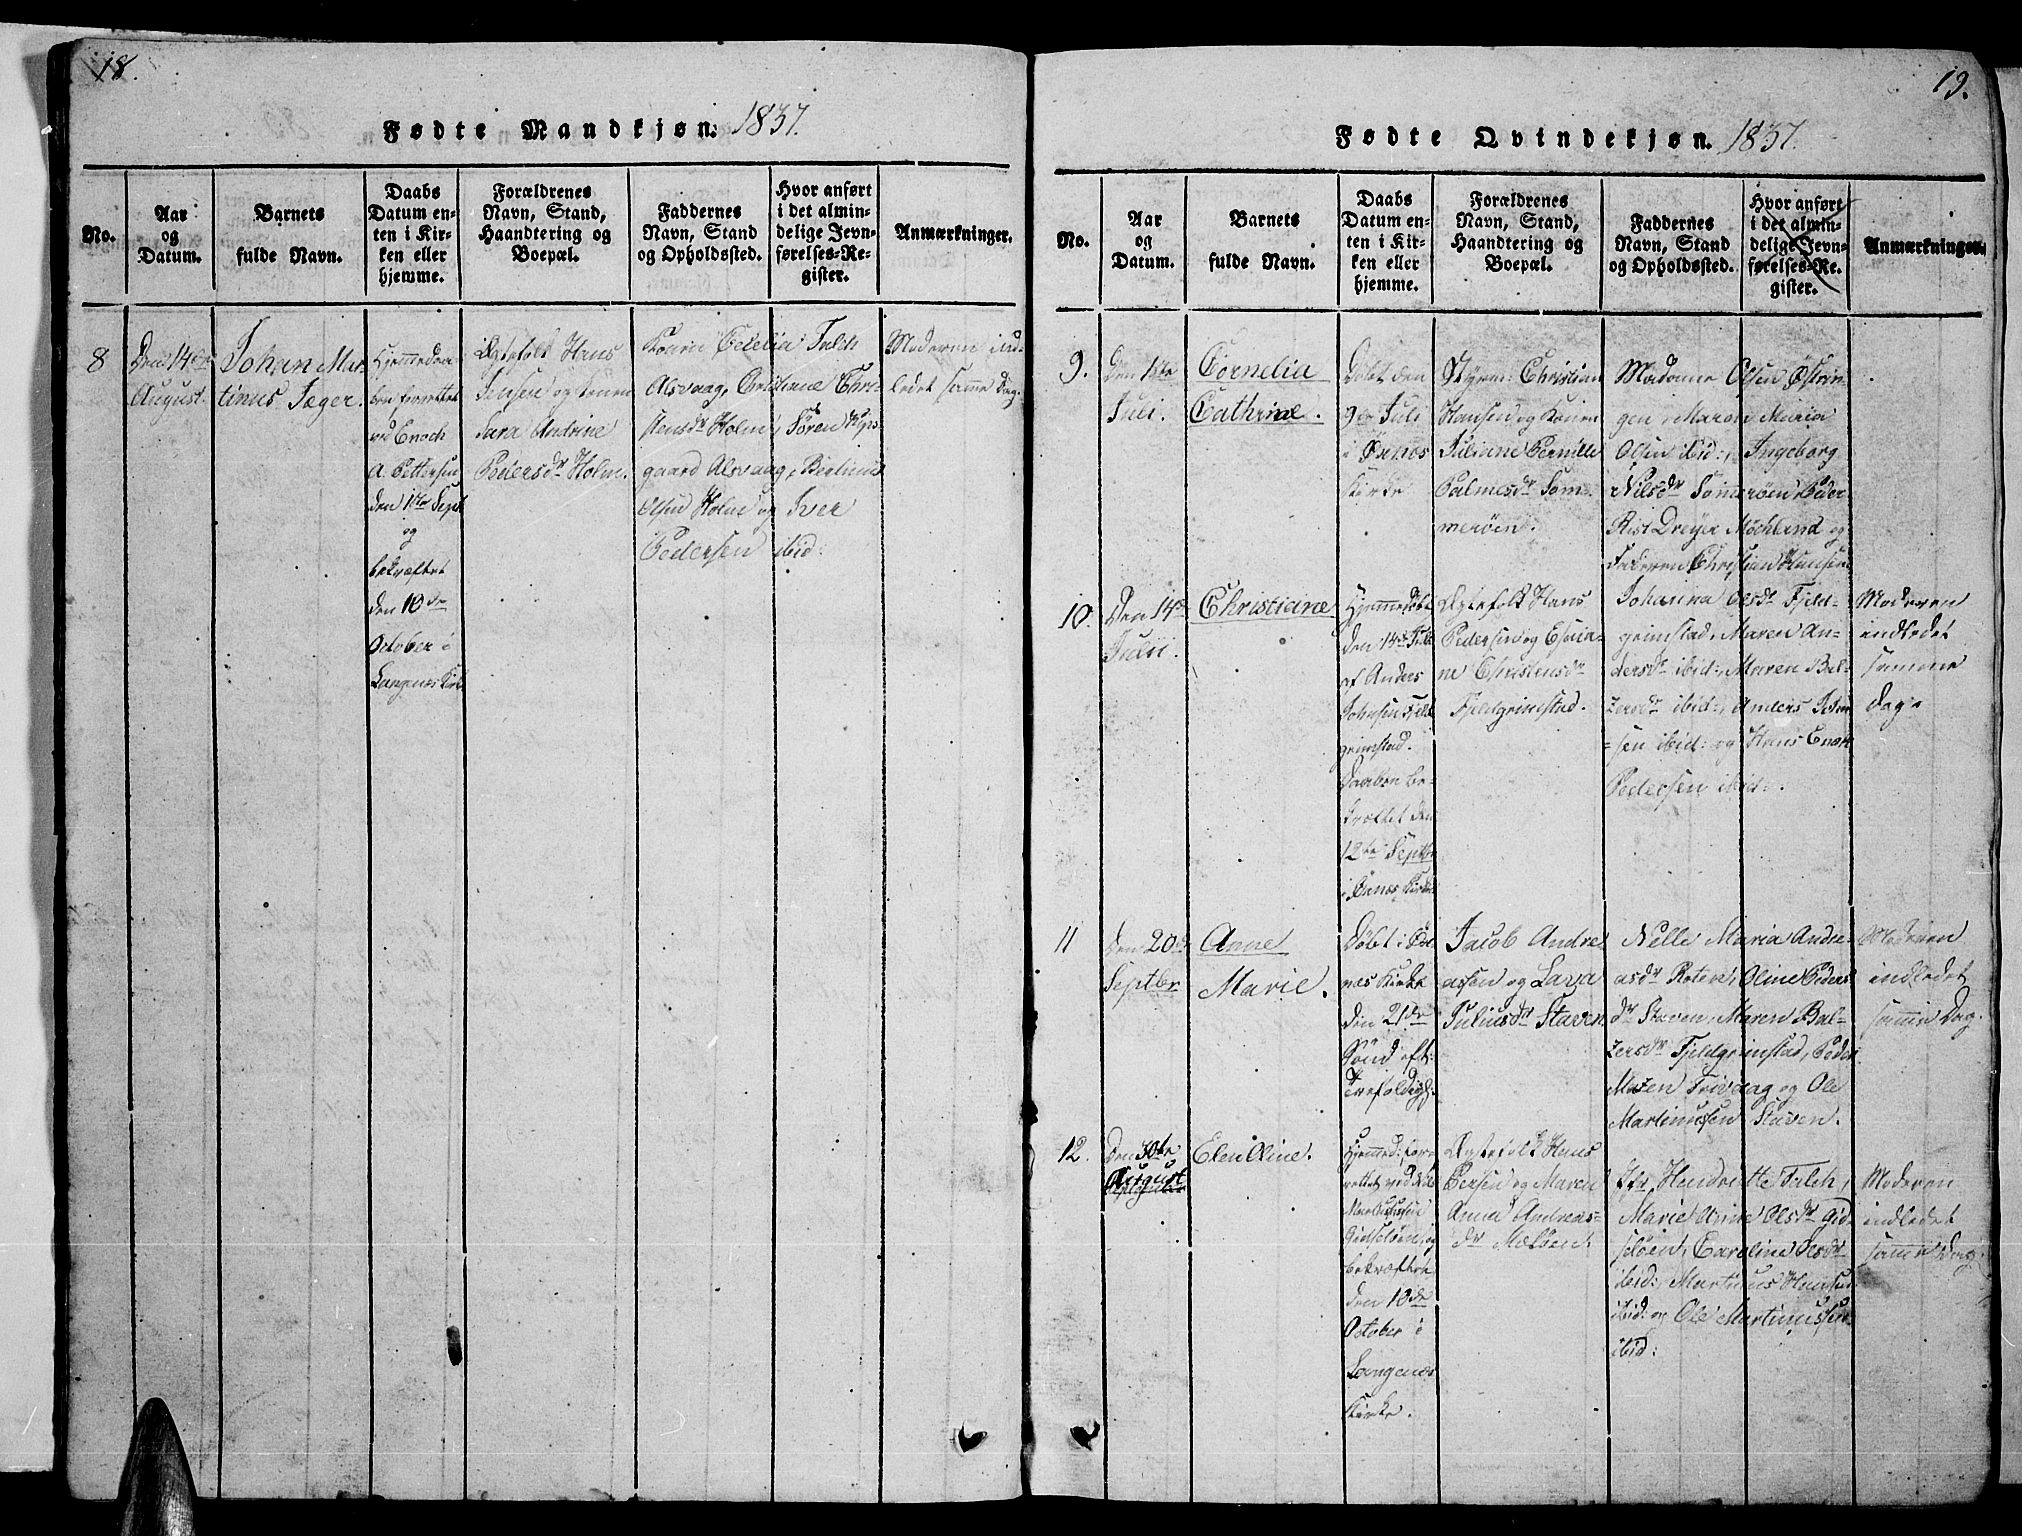 18.
Fødte Mandkjøn. 1837.
No.
Aar
og
Datum.
Barnets
fulde Navn.
Daabs
Datum en-
ten i Kir-
ken eller
hjemme.
Forældrenes
Navn, Stand,
Haandtering og
Boepæl.
Faddernes
Navn, Stand
og Opholdssted.
Hvor anført
i det almin-
delige Jevn-
førelses-Re-
gister.
Anmærkninger.
8
Den 14de
August.
Johan Mar-
tinus Jæger.
Hjemmedaa
ben forrettet
ved Enoch
A. Pettersen
den 1ste Sept
og
bekræftet
den 10de
October i
Langenæs Kirke
Ægtefolk Hans
Jensen og Konen
Sara Andrine
Pedersdr Holm.
Konen Cecelia Falch
Alsvaag, Christiane Chri-
stensdr Holm, Sören
gaard Alsvaag, Berlinus
Olsen Holm og Iver
Pedersen ibid:
Moderen ind-
ledet samme Dag.
19.
Fødte Qvindekjøn. 1837.
No.
Aar
og
Datum.
Barnets
fulde Navn.
Daabs
Datum en-
ten i Kir-
ken eller
hjemme.
Forældrenes
Navn, Stand,
Haandtering og
Boepæl.
Faddernes
Navn, Stand
og Opholdssted.
Hvor anført
i det almin-
delige Jevn-
førelses-Re-
gister.
Anmærkninger.
9.
Den 1ste
Juli.
Cornelia
Cathrine.
Döbt den
9de Juli
i Öxnæs
Kirke
Styrm: Christian
Hansen og Konen
Juliane Pernille
Palmesdr Som-
meröen.
Madame Olsen Östrin-
gen, Maren Maria
Olsen ibid:, Ingeborg
Nilsdr Sommeröen Peder
Rist Dreyer Möchland og
Faderen Christian Hansen
10.
Den 14de
Julii.
Christiane
Hjemmedöbt
den 14de Juli
af Anders
Johnsen Fjeld
grimstad.
Daaben be-
kræftet den
12te Septbr
i Öxnæs Kirke
Ægtefolk Hans
Pedersen og
ne Christensdr
Fjeldgrimstad.
Johanna Olsdr Fjeld-
grimstad, Maren An-
dersdr ibid:, Maren Bal-
zersdr ibid:, Anders John
sen ibid: og Hans
Pedersen ibid:.
Moderen
indledet
samme
Dag.
11
Den 20de
Septbr
Anne
Marie.
Döbt i Öx-
næs Kirke
den 21de
Sönd eft:
Trefoldigh:
Jacob Andre
assen og Lava
Juliusdr Staven.
Nelle Maria Andre-
asdr Roten, Oline Peders
dr Staven, Maren Bal-
zersdr Fjeldgrimstad, Peder
og Ole
Martinussen Staven.
Moderen
indledet
samme Dag.
12.
Den 30te
August
Elen Oline.
Hjemmed: for-
rettet ved Ole
Martinussen
Gidslöen og
bekræftet
den 10de
October i
Langenæs
Kirke.
Ægtefolk Hans
Persen og Maren
Anna Andreas-
dr Melöen.
Jfr. Hendriette Falch,
Marie Anne Olsdr Gid-
slöen, Caroline Olsdr
ibid: Martinus Hansen
ibid: og Ole Martinussen
ibid:
Moderen
indledet
samme Dag.